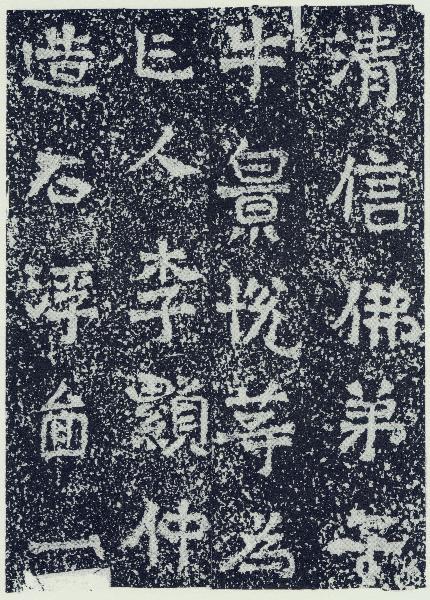 清信佛弟子
牛景悦等為
亡人李顯仲
造石浮啚一